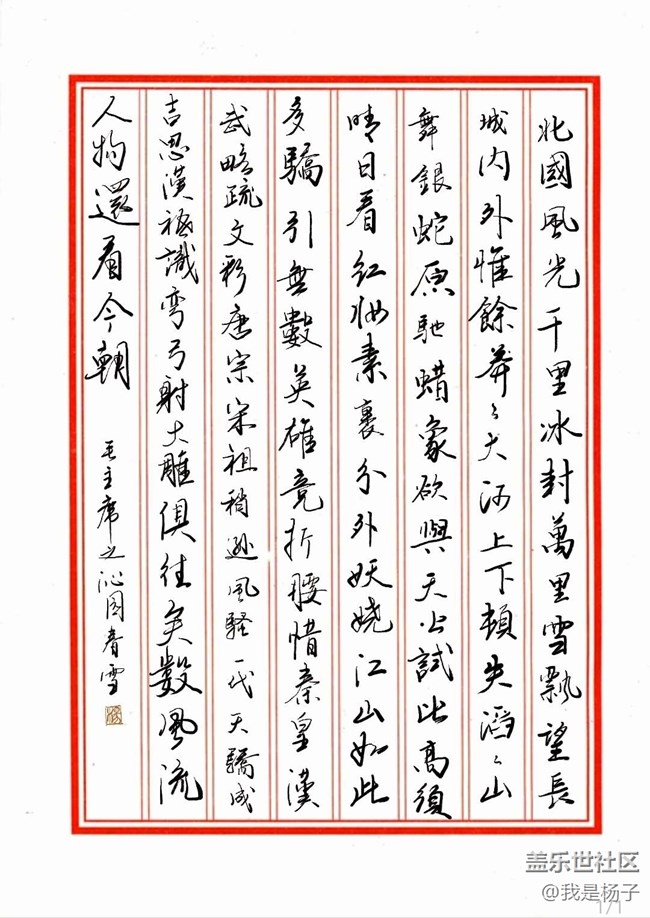 北國風光千里冰封萬里雪飄望長
城内外惟餘莽〻大河上下頓失滔〻山
舞銀蛇原馳蜡象欲與天公試比高須
晴日看红妝素裹分外妖娆江山如此
多驕引無數英雄竞折腰惜秦皇漢
武略疏文彩唐宗宋祖稍逊風騷一代天驕成
吉思漢祗識弯弓射大雕俱往矣數風流
人物還看今朝
毛主席之沁园春雪
盖乐世社区
@我是杨子